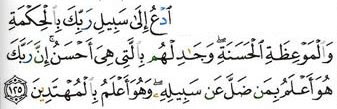 ٱدۡعُ إِلَىٰ سَبِيلِ رَبِّكَ بِٱلۡحِكۡمَةِ
وَٱلۡمَوۡعِظَةِ ٱلۡحَسَنَةِۖ وَجَٰدِلۡهُم بِٱلَّتِي هِيَ أَحۡسَنُۚ إِنَّ رَبَّكَ
هُوَ أَعۡلَمُ بِمَن ضَلَّ عَن سَبِيلِهِۦ وَهُوَ أَعۡلَمُ بِٱلۡمُهۡتَدِينَ ١٢٥